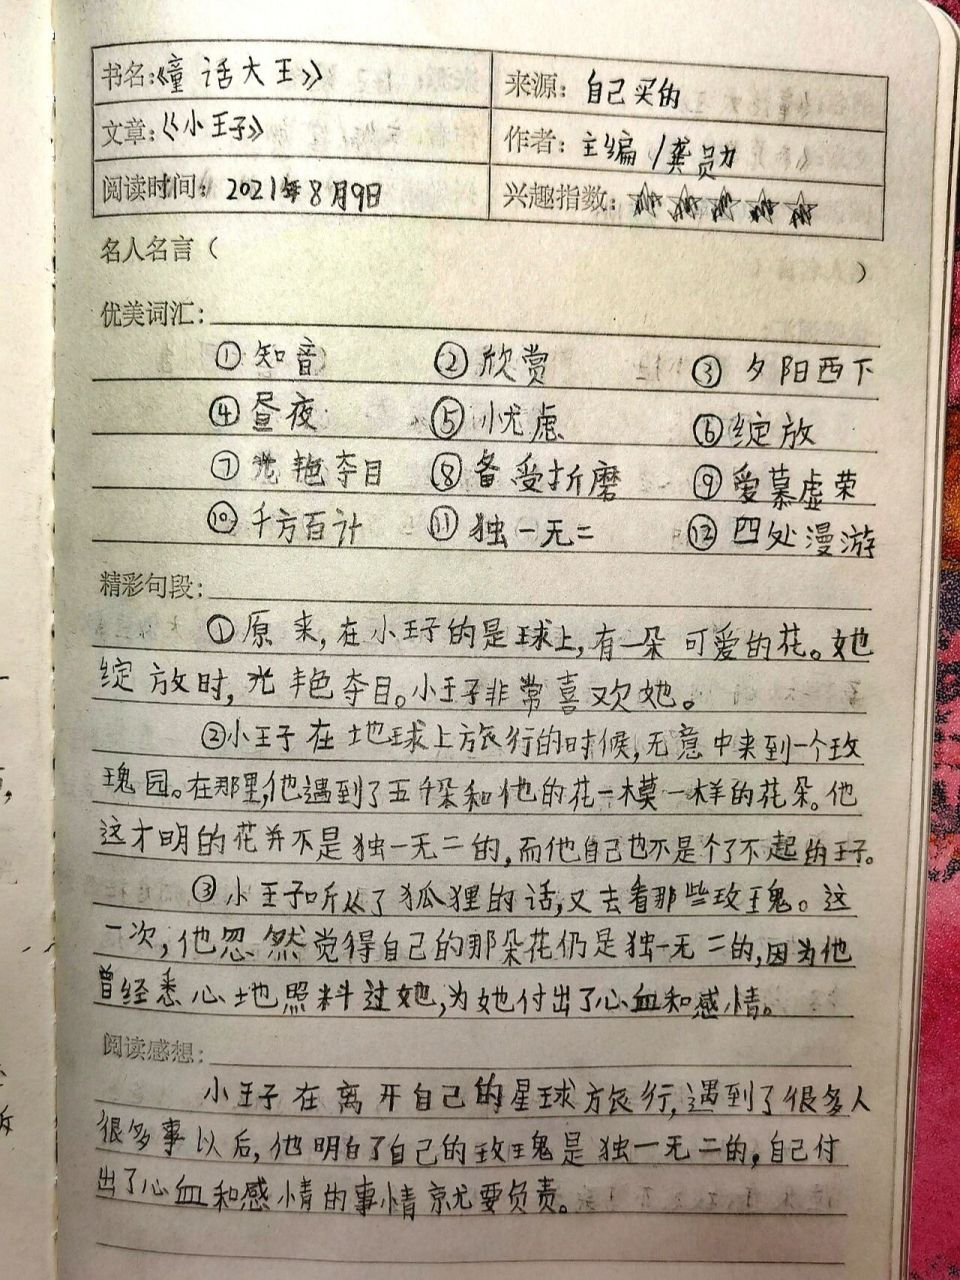 书名:《童话大王》 来源: 自己买的
文章:《小王子》 作者: 主编/龚勋
阅读时间: 2021年8月9日 兴趣指数: ☆☆☆☆☆
名人名言( )
优美词汇:
①知音 ②欣赏 ③夕阳西下
④昼夜 ⑤忧虑 ⑥绽放
⑦光艳夺目 ⑧备受折磨 ⑨爱慕虚荣
⑩千方百计 ⑪独一无二 ⑫四处漫游
精彩句段:
①原来,在小王子的是球上,有一朵可爱的花。她
绽放时,光艳夺目。小王子非常喜欢她。
②小王子在地球上旅行的时候,无意中来到一个玫
瑰园。在那里,他遇到了五千朵和他的花一模一样的花朵。他
这才明的花并不是独一无二的,而他自己也不是个了不起的王子。
③小王子听从了狐狸的话,又去看那些玫瑰。这
一次,他忽然觉得自己的那朵花仍是独一无二的,因为他
曾经悉心地照料过她,为她付出了心血和感情。
阅读感想:
小王子在离开自己的星球旅行,遇到了很多人
很多事以后,他明白了自己的玫瑰是独一无二的,自己付
出了心血和感情的事情就要负责。